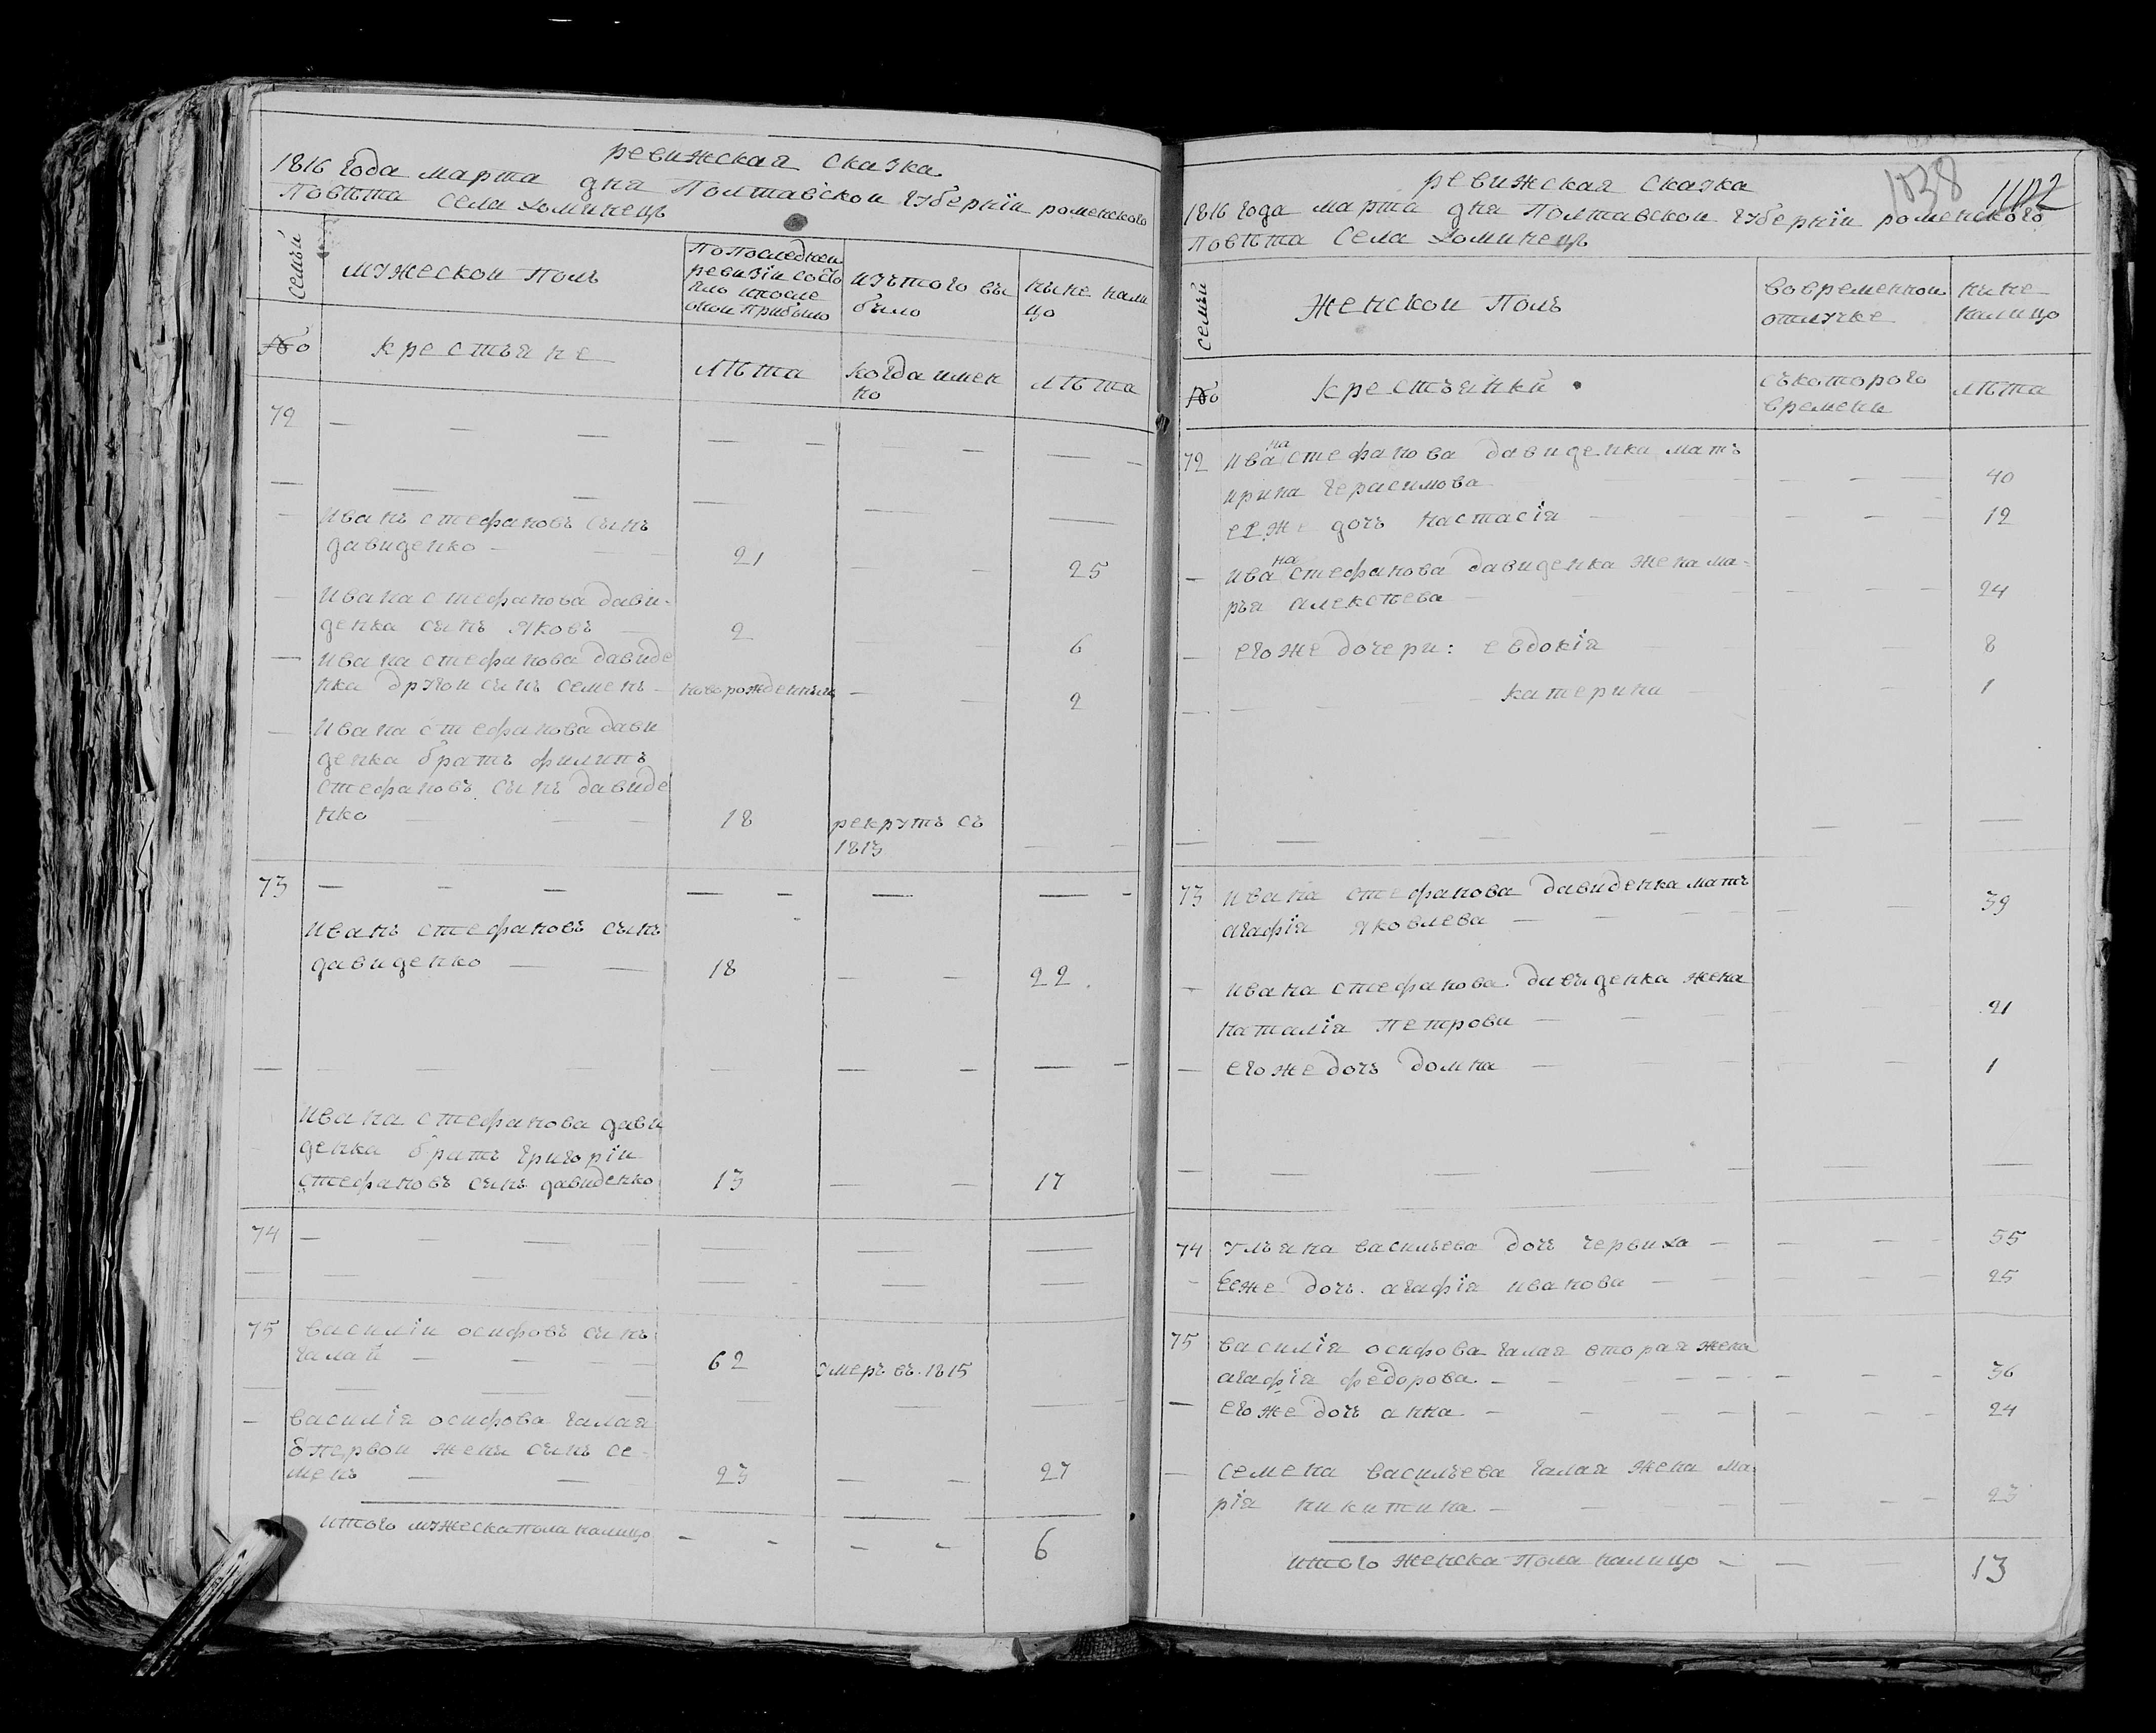 ревижская сказка
1816 года марта дня Полтавской губернїи роменского
Повѣта Села Хоминецъ
семьи
мужеской Полъ
По Последней
ревизіи состо
яло и после
оной Прибыло
изътого вы
было
ныне нали
цо
№
крестьяне
Лѣта
когда имен
но
Лѣта
72
Иванъ стефановъ сынъ
давиденко
21
25
Ивана стефанова дави-
денка сынъ Яковъ
2
6
Ивана стефанова давиде
нка другой сынъ семенъ
новорожденный
2
Ивана стефанова дави
денка братъ филипъ
стефановъ сынъ давиде
нко
18
рекрутъ съ
1813
73
Иванъ стефановъ сынъ
давиденко
18
22
Ивана стефанова дави
денка братъ григорій
стефановъ сынъ давиденко
13
17
74
75
василіи осифовъ сынъ
галай
62
умеръ въ 1815
василія осифова галая
первой жены сынъ се-
менъ
23
27
итого мужеска пола налицо
6
1038
1102
ревижская сказка
1816 года марта дня Полтавской губернїи роменского
Повѣта Села Хоминецъ
семьи
Женской Полъ
вовременной
отлучке
ныне
налицо
№
крестьянки
съкоторого
времени
лѣта
72
Ивана стефанова давиденка мать
ирина герасимова
40
ее же дочь настасія
12
Ивана стефанова давиденка жена ма-
рья алексѣева
24
егоже дочери: евдокія
8
катерина
1
73
Ивана стефанова давиденка мать
агафія яковлева
39
Ивана стефанова давыденка жена
наталія петрова
21
егоже дочь домна
1
74
Ульяна васильева дочь червиха
55
Ееже дочь агафія иванова
25
75
василія осифова галая вторая жена
агафія федорова
36
егоже дочь анна
24
семена васильева галая жена ма
рія никитина
23
итого женска Пола налицо
13